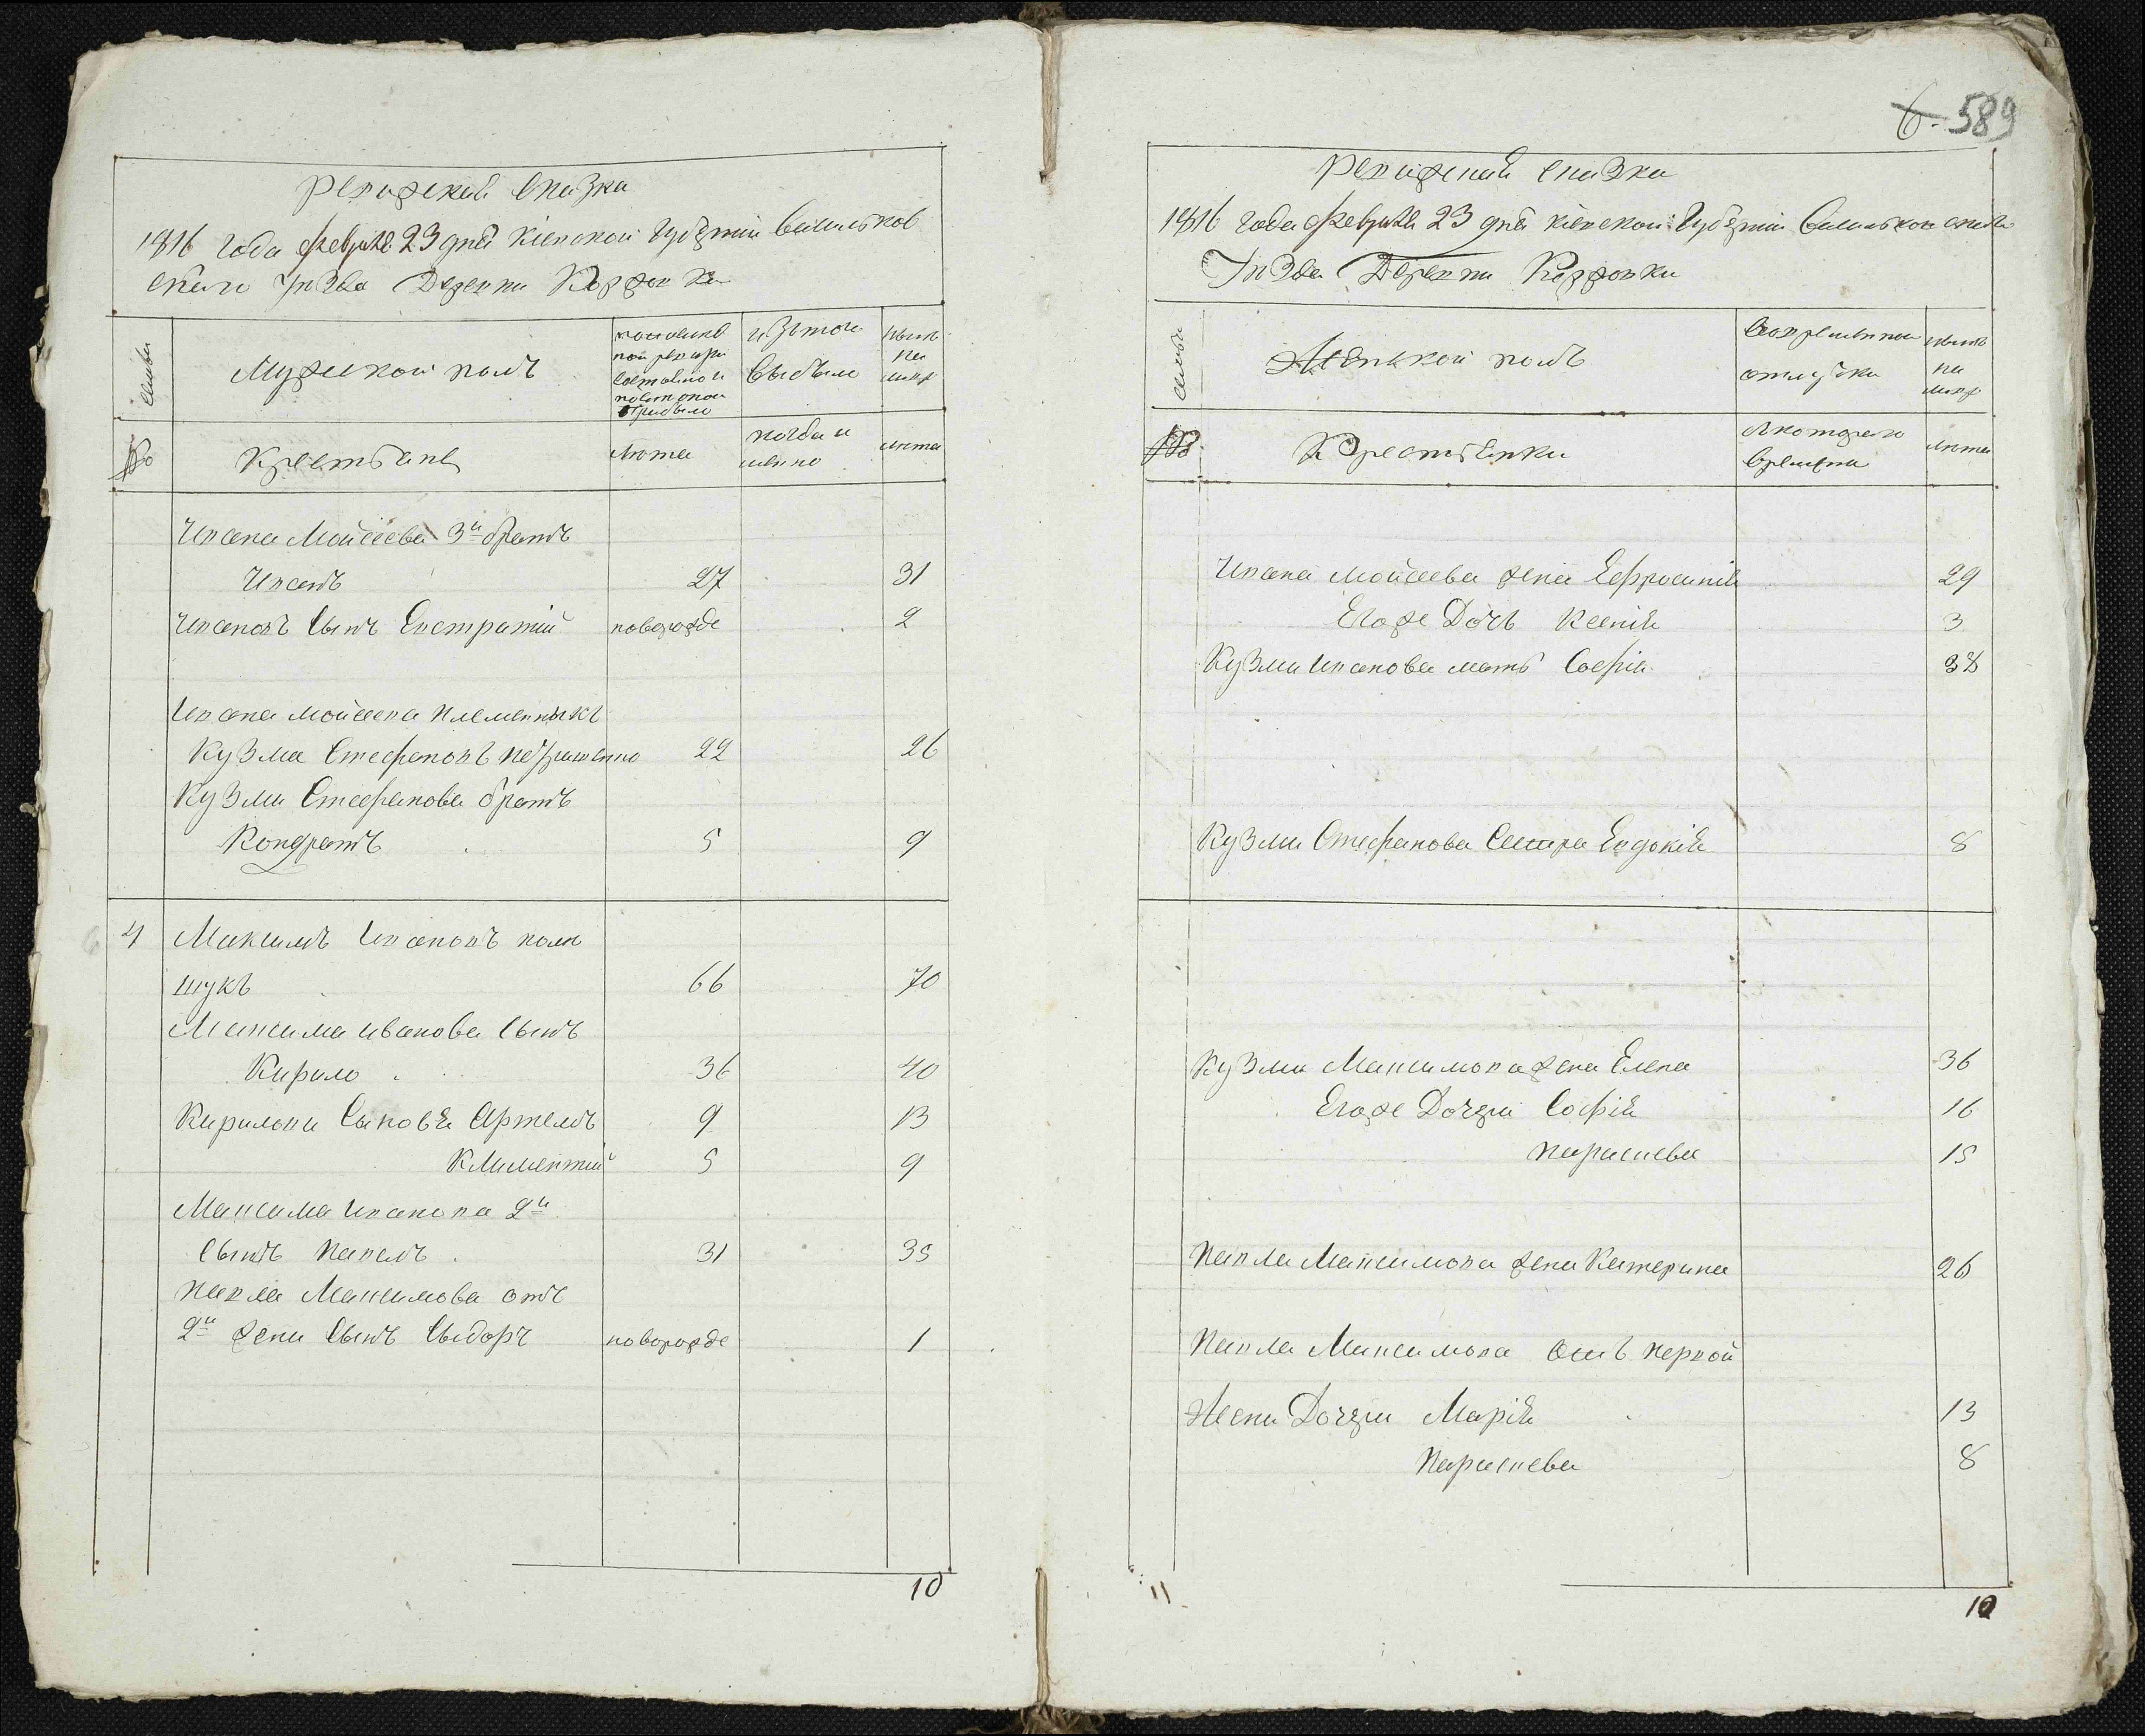 Ревизская сказка
1816 года февраля 23 дня Кіевской Губерніи Васильков
скаго уезда Деревни
семьи
Мужеской полъ
по последней ревизіи состояло и после оной прибыло
изъ того выбыло
ныне на лицо
№
Крестьяне
лета
когда и именно
лета
Ивана Мойсеева 3й братъ
Иванъ 27 31
Ивановъ Сынъ Евстратій новорожде 2
Ивана Мойсеева племенныкъ
Кузма Стефановъ 22 26
Кузми Стефанова братъ
Кондратъ 5 9
4 Максимъ Ивановъ поли
щукъ 66 70
Максима Иванова Сынъ
Кирило 36 40
Кирилови Сыновя Артемъ 9 13
Климентій 5 9
Максима Иванова 2й
Сынъ Павелъ 31 35
Павла Максимова отъ
2й жени Сынъ Сыдоръ новорожде 1
10
6. 589
Ревизская сказка
1816 года февраля 23 дня Кіевской Губерніи Васильковскаго
Уезда Деревни
семьи
Женской полъ
во временной отлучки
ныне на лицо
№
Крестьянки
с котораго времени
лета
Ивана Мойсеева жена Ефросинія 29
Егоже Дочь Ксенія 3
Кузми Иванова мать Софія 38
Кузми Стефанова Сестра Евдокія 8
Кузми Максимова жена Елена 36
Егоже Дочери Софія 16
Параскева 15
Павла Максимова жена Катерина 26
Павла Максимова отъ первой
Жени Дочери Марія 13
Параскева 8
11
10